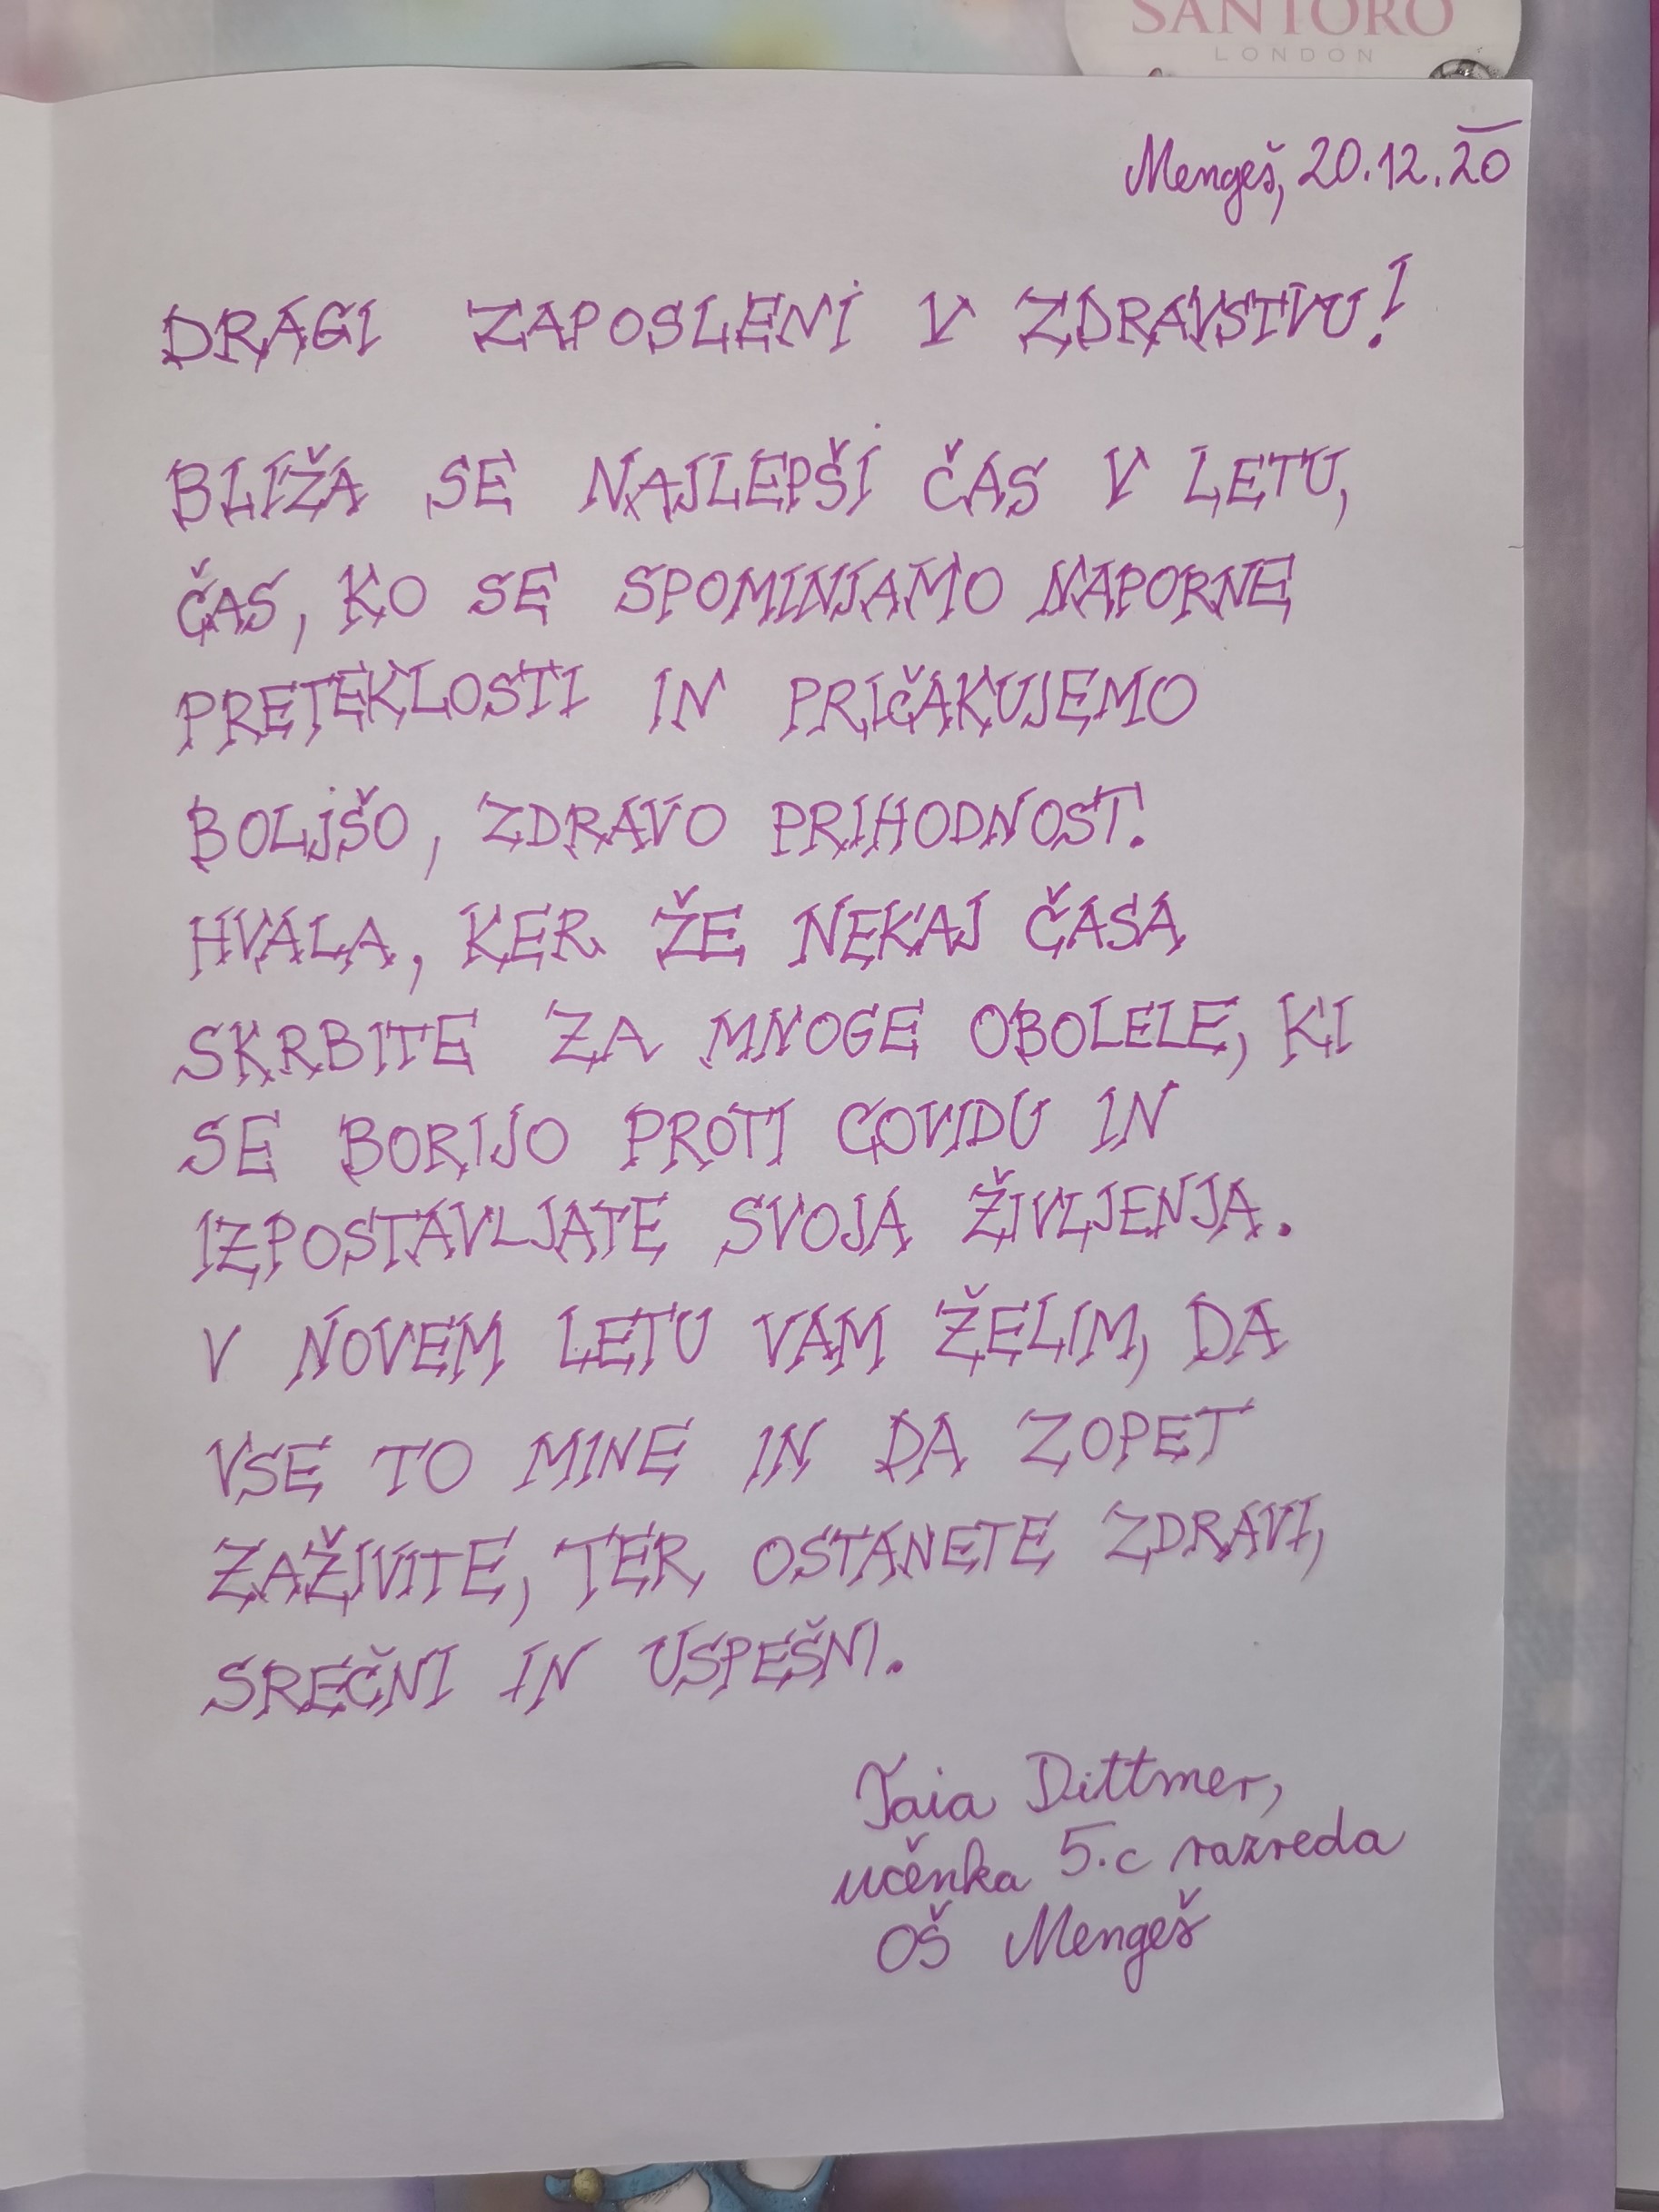 SANTORO
LONDON
Mengeš, 20.12.20
DRAGI ZAPOSLENI V ZDRAVSTVU!
BLIŽA SE NAJLEPŠI ČAS V LETU,
ČAS, KO SE SPOMINJAMO NAPORNE
PRETEKLOSTI IN PRIČAKUJEMO
BOLJŠO, ZDRAVO PRIHODNOST.
HVALA, KER ŽE NEKAJ ČASA
SKRBITE ZA MNOGE OBOLELE, KI
SE BORIJO PROTI COVIDU IN
IZPOSTAVLJATE SVOJA ŽIVLJENJA.
V NOVEM LETU VAM ŽELIM, DA
VSE TO MINE IN DA ZOPET
ZAŽIVITE, TER OSTANETE ZDRAVI,
SREČNI IN USPEŠNI.
Taia Dittmer,
učenka 5.c razreda
OŠ Mengeš